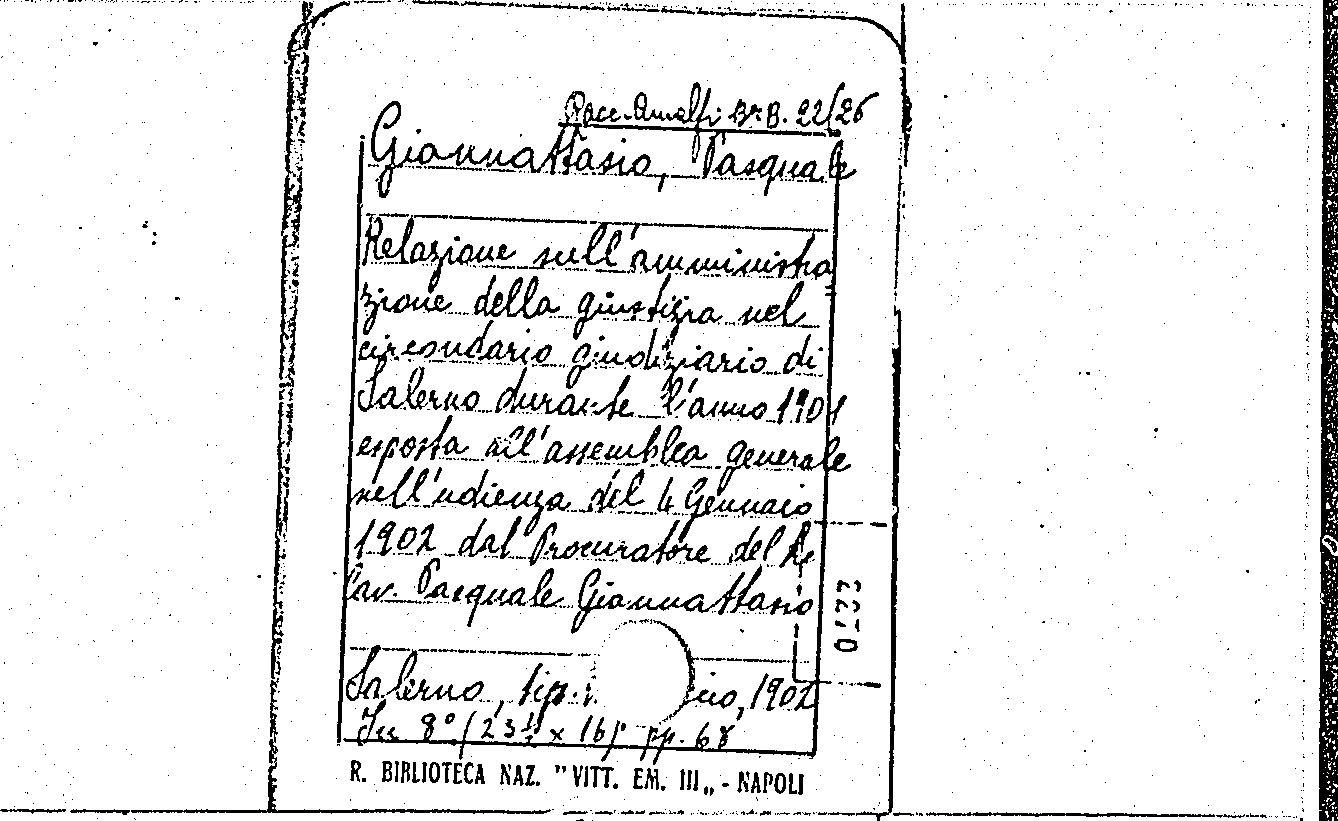 Racc. Amalfi Br B. 22/26
Giannattasio, Pasquale
Relazione sull'amministra
zione della giustizia nel
circondario giudiziario di
Salerno durante l'anno 1901
esposta all'assemblea generale
nell'udienza del 4 Gennaio
1902 dal Procuratore del Re
Cav. Pasquale Giannattasio
2270
Salerno, tip. 1902
In 8° (23 ½ × 16) pp. 68
R. BIBLIOTECA NAZ. "VITT. EM. III„ - NAPOLI